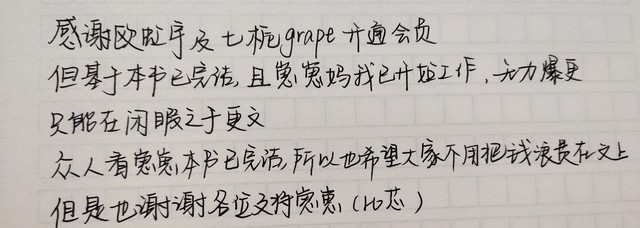 感谢欧虹宇及七栀grape开通会员
但基于本书已完结,且崽崽妈我已开始工作,无力爆更
只能在闲暇之于更文
众人看崽崽,本书已完结,所以也希望大家不用把钱浪费在文上
但是也谢谢各位支持崽崽(比芯)